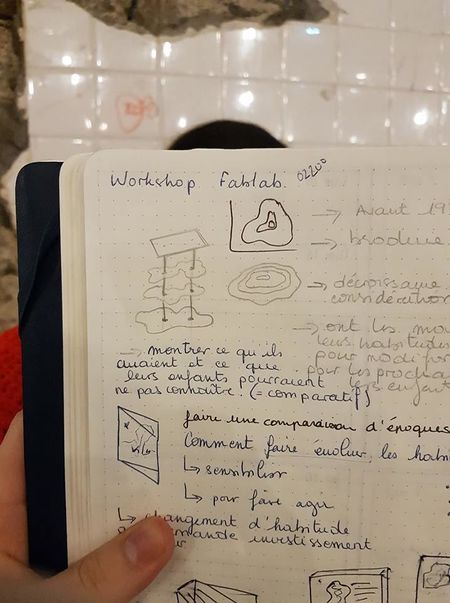 Workshop Fablab. 02200
→ Avant 19
→ broderie
→ décroissance
considération
→ ont les mo
leurs habitudes
pour modifier
pour les procha
leurs enfant
→ montrer ce qu'ils
avaient et ce que
leurs enfants pourraient
ne pas connaître. (= comparatif)
faire une comparaison d'époques
Comment faire évoluer les hab
↳ sensibiliser
↳ pour faire agir
↳ changement d'habitude
demande investissement